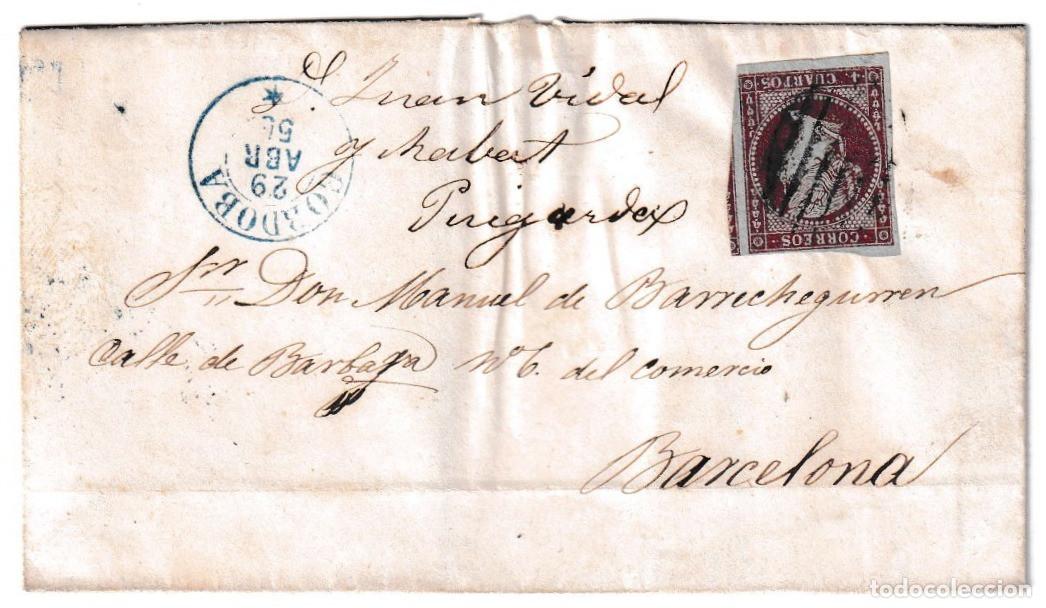 D. Juan Vidal
y
Sr. Don Manuel de Barrechegurren
Calle de nº 6. del comercio
Barcelona
CORDOBA
29
ABR
CORREOS
4 CUARTOS
todocoleccion